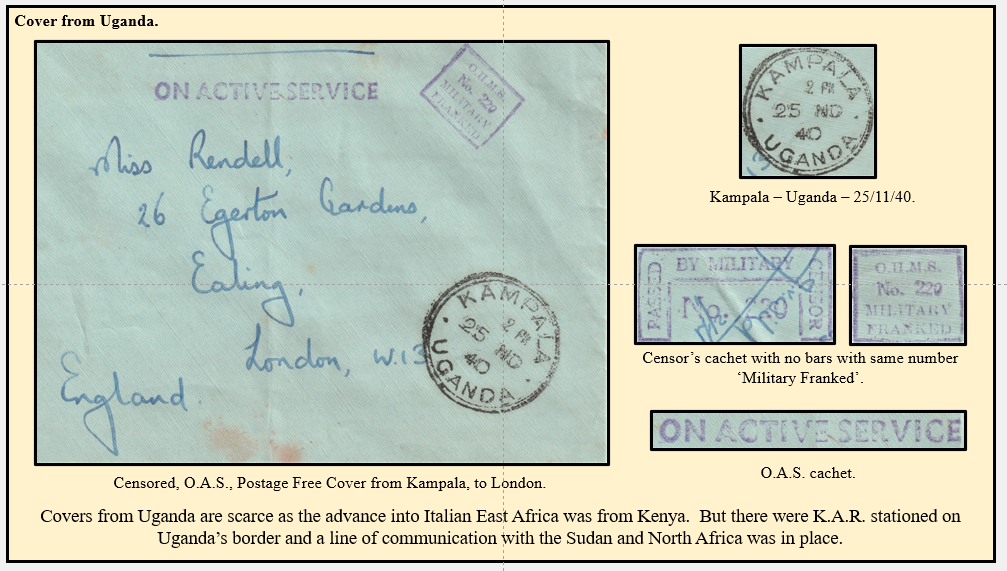 Cover from Uganda.
ON ACTIVE SERVICE
O.H.M.S.
No. 229
MILITARY
FRANKED
Miss Rendell,
26 Egerton Gardens,
Ealing,
London, W.13
England.
KAMPALA
2 PM
25 NO
40
UGANDA
Censored, O.A.S., Postage Free Cover from Kampala, to London.
KAMPALA
2 PM
25 NO
40
UGANDA
Kampala – Uganda – 25/11/40.
PASSED
BY MILITARY
CENSOR
No.
O.H.M.S.
No. 229
MILITARY
FRANKED
Censor’s cachet with no bars with same number
‘Military Franked’.
ON ACTIVE SERVICE
O.A.S. cachet.
Covers from Uganda are scarce as the advance into Italian East Africa was from Kenya.  But there were K.A.R. stationed on
Uganda’s border and a line of communication with the Sudan and North Africa was in place.